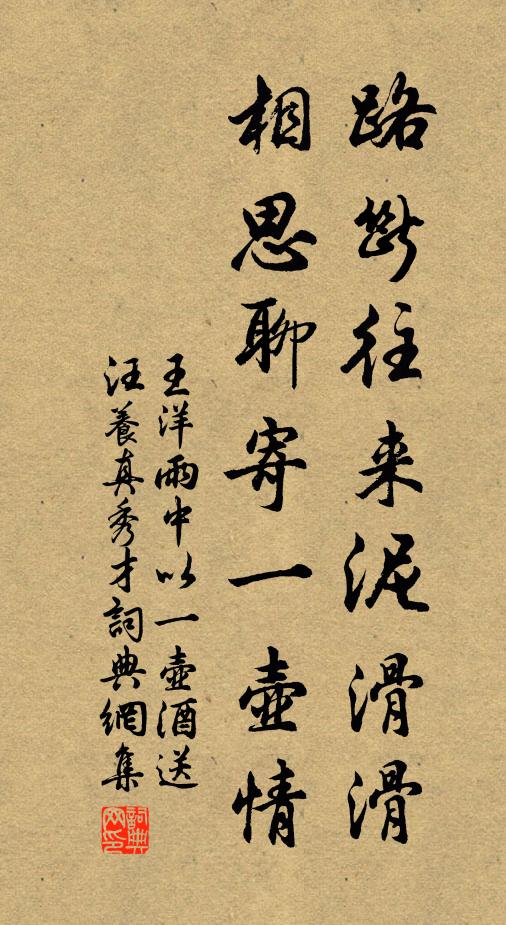 路斷往来泥滑滑
相思聊寄一壺情
王洋雨中以一壺酒送
汪養真秀才詞典網集
詞典网印